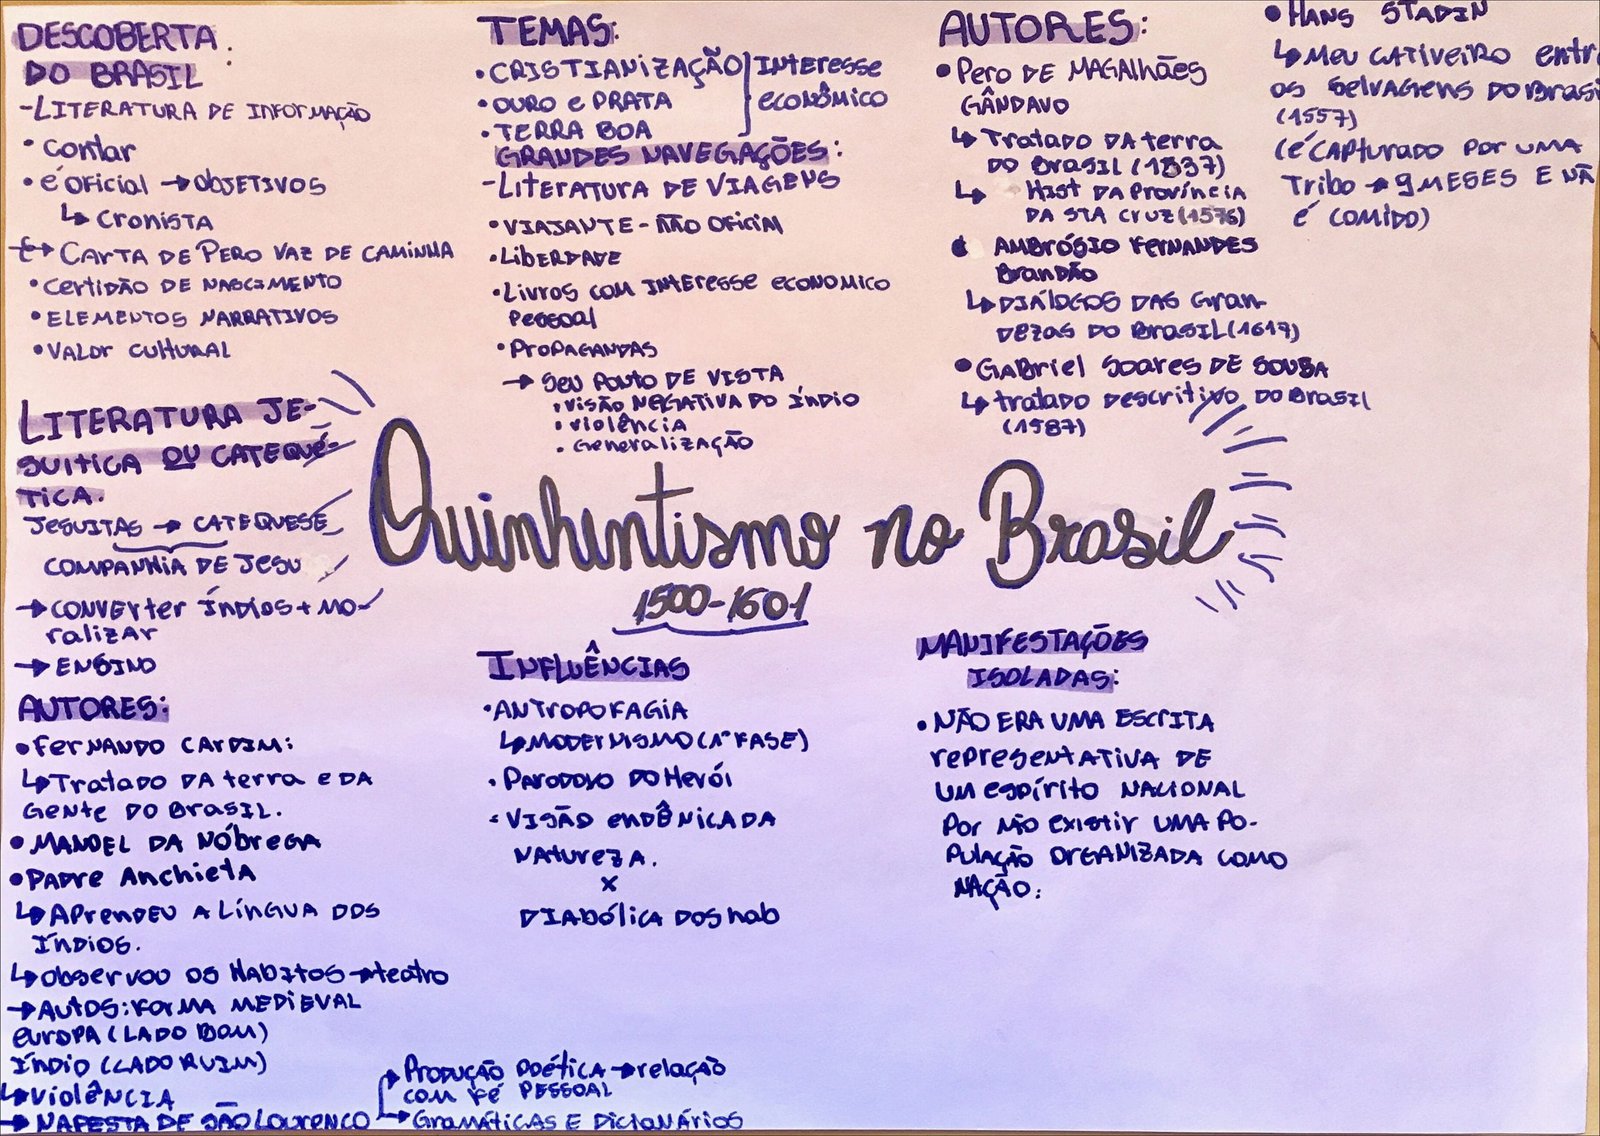 DESCOBERTA
DO BRASIL:
-LITERATURA DE INFORMAÇÃO
• contar
• é oficial → objetivos
↳ cronista
↳ CARTA DE PERO VAZ DE CAMINHA
• certidão de nascimento
• ELEMENTOS NARRATIVOS
• VALOR cultural
LITERATURA JE-
SUITICA OU CATEQUÉ-
TICA.
JESUITAS → CATEQUESE
COMPANHIA DE JESU
→ CONVERter índios + MO-
ralizar
→ ENSINO
AUTORES:
• FerNANDO CARDIM:
↳ Tratado DA terra E DA
Gente DO Brasil.
• MANOEL DA NÓBREGA
• PADRE Anchieta
↳ Aprendeu A Língua DOS
Índios.
↳ observou os Habitos → teatro
→ AUTOS: forma MEDIEVAL
europa (LADO BOM)
índio (LADO RUIM)
↳ violência
→ NA FESTA DE SÃO LOURENCO
→ Produção poética → relação
com fé PESSOAL
→ Gramáticas E Dicionários
TEMAS:
• CRISTIANIZAÇÃO
• OURO e PRATA
• TERRA BOA
INTeresse
econômico
GRANDES NAVEGAÇÕES:
-LITERATURA DE VIAGENS
• VIAJANTE - não oficial
• LIBERDADE
• Livros com INTeresse economico
pessoal
• PROPAGANDAS
→ Seu ponto DE VISTA
• visão NEGATIVA DO índio
• violência
• Generalização
Quinhentismo no Brasil
1500-1601
INFLUÊNCIAS
• ANTROPOFAGIA
↳ MODERNISMO (1ª FASE)
• PARODOXO DO Herói
• VISÃO endênica DA
NATUREZA.
x
DIAbólica DOS hab
AUTORES:
• Pero DE MAGALhães
GÂNDAVO
↳ Tratado DA terra
DO Brasil (1837)
↳ Hist DA Província
DA STA CRUZ (1576)
• AMBRÓSIO FERNANDES
BRANDÃO
↳ DIÁLOGOS DAS Gran-
DEZAS DO BRASIL (1617)
• GABriel Soares DE SOUSA
↳ tratado Descritivo DO Brasil
(1587)
• HANS STADIN
↳ Meu CATIVEIRO entr
os selvagens DO Brasi
(1557)
(é CAPTURADO POR UMA
Tribo → 9 MESES E NÃ
é COMIDO)
MANIFESTAÇÕES
ISOLADAS:
• NÃO ERA UMA ESCRITA
representativa DE
UM espírito NACIONAL
Por não existir UMA PO-
PULAÇÃO ORGANIZADA COMO
NAÇÃO: